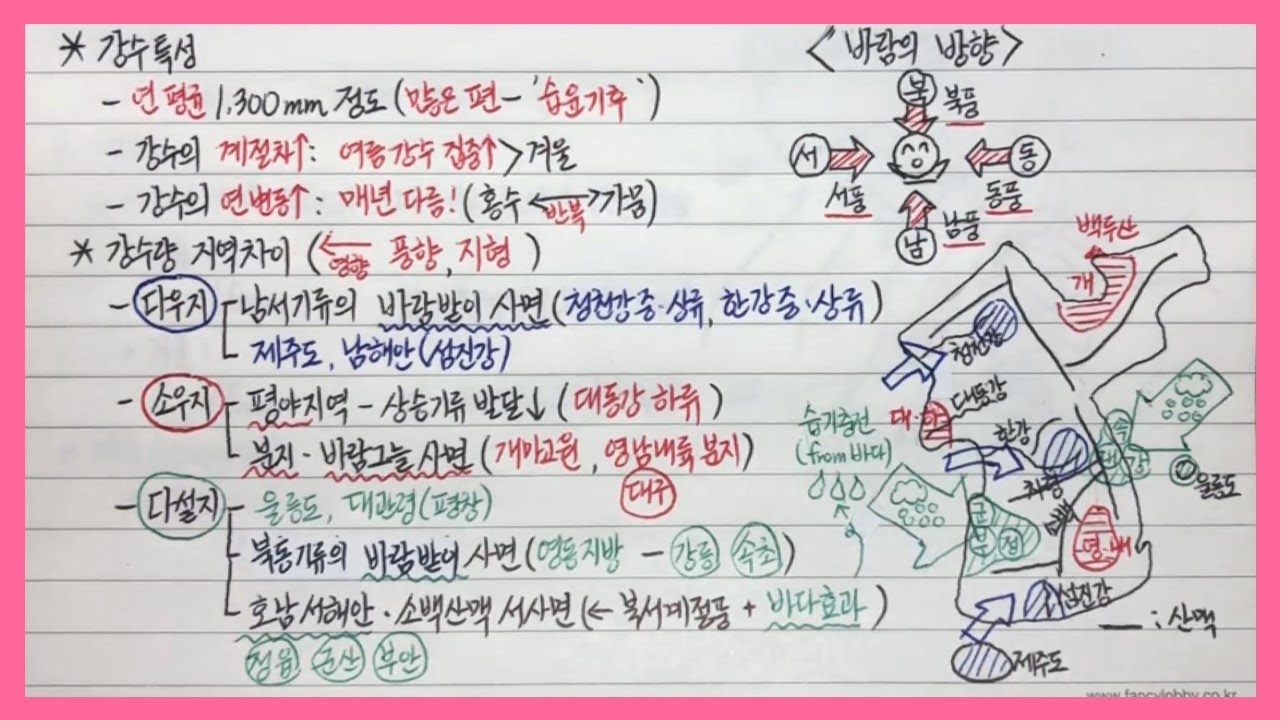 * 강수특성
- 연 평균 1,300mm 정도 (많은 편 - '습윤기후')
- 강수의 계절차↑: 여름 강수 집중↑ > 겨울
- 강수의 연변동↑: 매년 다름! (홍수 ↔ 가뭄)
반복
* 강수량 지역차이 (← 풍향, 지형)
영향
- 다우지 - 남서기류의 바람받이 사면 (청천강 중·상류, 한강 중·상류)
제주도, 남해안 (섬진강)
- 소우지 - 평야지역 - 상승기류 발달↓ (대동강 하류)
분지·바람그늘 사면 (개마고원, 영남내륙 분지)
대구
- 다설지 - 울릉도, 대관령 (평창)
북동기류의 바람받이 사면 (영동지방 - 강릉 속초)
호남 서해안·소백산맥 서사면 (← 북서계절풍 + 바다효과)
정읍 군산 부안
<바람의 방향>
북
북풍
서
동
서풍
동풍
남
남풍
백두산
개
청천강
대동강
대·하
한강
습기충전
(from바다)
속
강
울릉도
군
부
정
영·내
섬진강
제주도
— : 산맥
www.fancylobby.co.kr